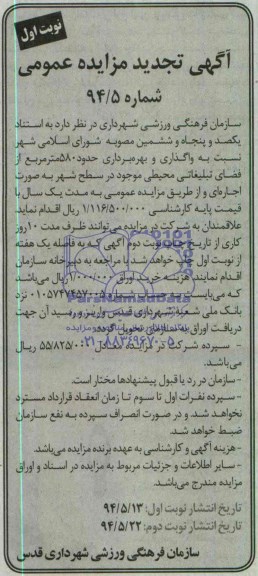 نوبت اول
آگهی تجدید مزایده عمومی
شماره ۹۴/۵
سازمان فرهنگی ورزشی شهرداری در نظر دارد به استناد
یکصد و پنجاه و ششمین مصوبه شورای اسلامی شهر
نسبت به واگذاری و بهره‌برداری حدود ۵۸۰مترمربع از
فضای تبلیغاتی محیطی موجود در سطح شهر به صورت
اجاره‌ای و از طریق مزایده عمومی به مدت یک سال با
قیمت پایه کارشناسی ۱/۱۱۶/۵۰۰/۰۰۰ ریال اقدام نماید.
علاقمندان به شرکت در مزایده می‌توانند ظرف مدت ۱۰ روز
کاری از تاریخ چاپ نوبت دوم آگهی که به فاصله یک هفته
از نوبت اول چاپ خواهد شد با مراجعه به دبیرخانه سازمان
اقدام نمایند هزینه خرید اوراق ریال می‌باشد
که می‌بایست نزد
بانک ملی شعبه شهرداری قدس واریز و رسید آن جهت
دریافت اوراق به سازمان تحویل گردد.
- سپرده شرکت در مزایده معادل ۵۵/۸۲۵/۰۰۰ ریال
می‌باشد.
- سازمان در رد یا قبول پیشنهادها مختار است.
- سپرده نفرات اول تا سوم تا زمان انعقاد قرارداد مسترد
نخواهد شد و در صورت انصراف سپرده به نفع سازمان
ضبط خواهد شد.
- هزینه آگهی و کارشناسی به عهده برنده مزایده می‌باشد.
- سایر اطلاعات و جزئیات مربوط به مزایده در اسناد و اوراق
مزایده مندرج می‌باشد.
تاریخ انتشار نوبت اول: ۹۴/۵/۱۳
تاریخ انتشار نوبت دوم: ۹۴/۵/۲۲
سازمان فرهنگی ورزشی شهرداری قدس
ParsNamadData
۰۲۱-۸۸۳۴۹۶۷۰-۵